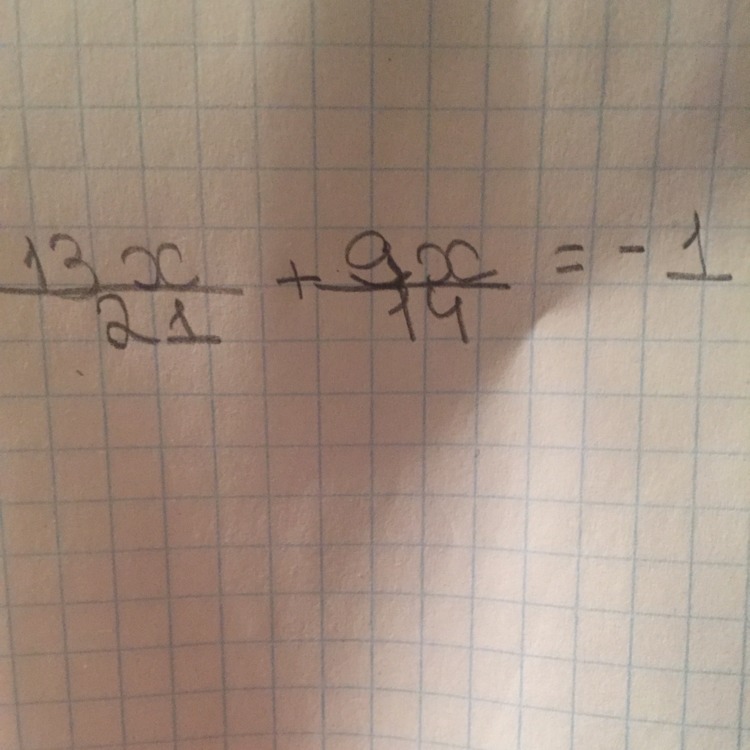 13x/21 + 9x/14 = - 1